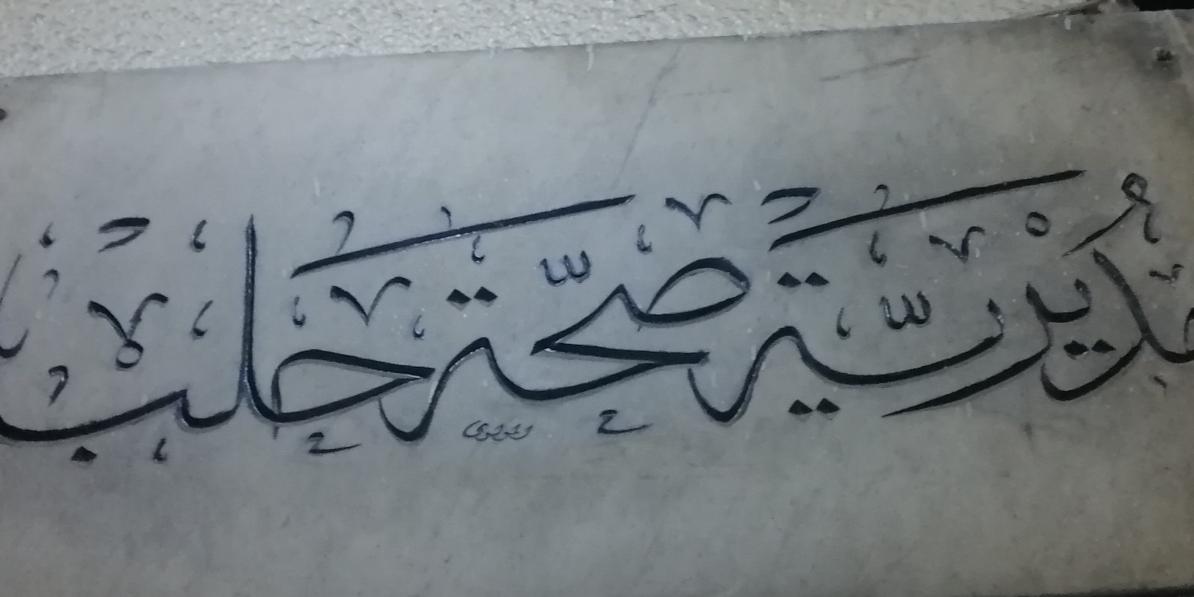 مُديْريَّة صحَّة حلب